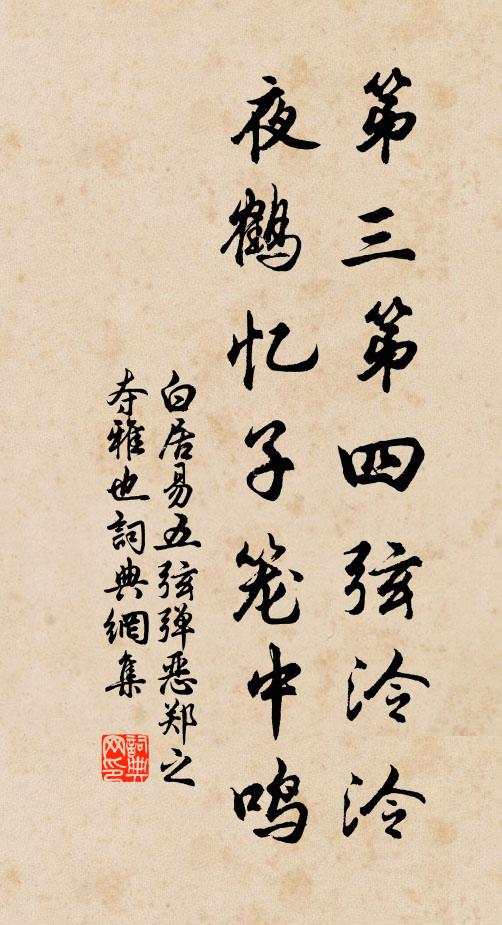 第三第四弦泠泠
夜鹤忆子笼中鸣
白居易五弦弹恶郑之
夺雅也词典網集
詞典
网印